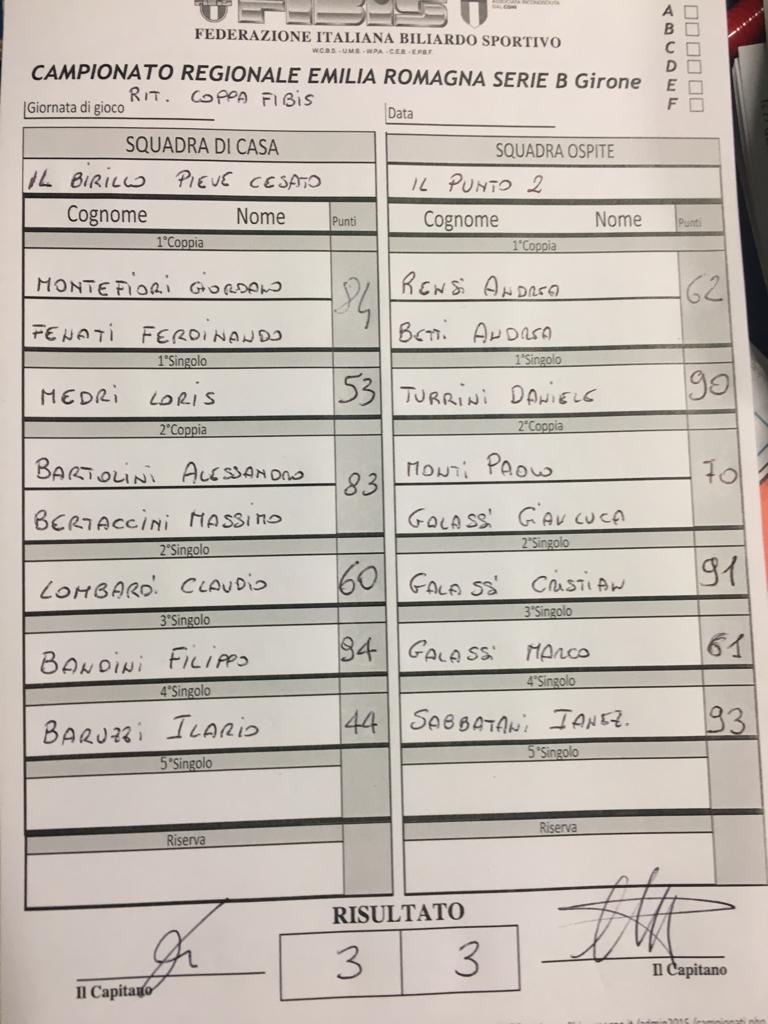 FIBIS
FEDERAZIONE ITALIANA BILIARDO SPORTIVO
W.C.B.S. - U.M.B. - W.P.A. - C.E.B. - E.P.B.F.
A
B
C
D
E
F
CAMPIONATO REGIONALE EMILIA ROMAGNA SERIE B Girone
Giornata di gioco RIT. COPPA FIBIS
Data
SQUADRA DI CASA SQUADRA OSPITE
IL BIRILLO PIEVE CESATO IL PUNTO 2
Cognome Nome Punti Cognome Nome Punti
1°Coppia 1°Coppia
MONTEFIORI GIORDANO 84 RENSI ANDREA 62
FENATI FERDINANDO BETTI ANDREA
1°Singolo 1°Singolo
MEDRI LORIS 53 TURRINI DANIELE 90
2°Coppia 2°Coppia
BARTOLINI ALESSANDRO 83 MONTI PAOLO 70
BERTACCINI MASSIMO GALASSI GIANLUCA
2°Singolo 2°Singolo
LOMBARDI CLAUDIO 60 GALASSI CRISTIAN 91
3°Singolo 3°Singolo
BANDINI FILIPPO 94 GALASSI MARCO 61
4°Singolo 4°Singolo
BARUZZI ILARIO 44 SABBATANI IANEZ. 93
5°Singolo 5°Singolo
Riserva Riserva
RISULTATO
3 3
Il Capitano Il Capitano